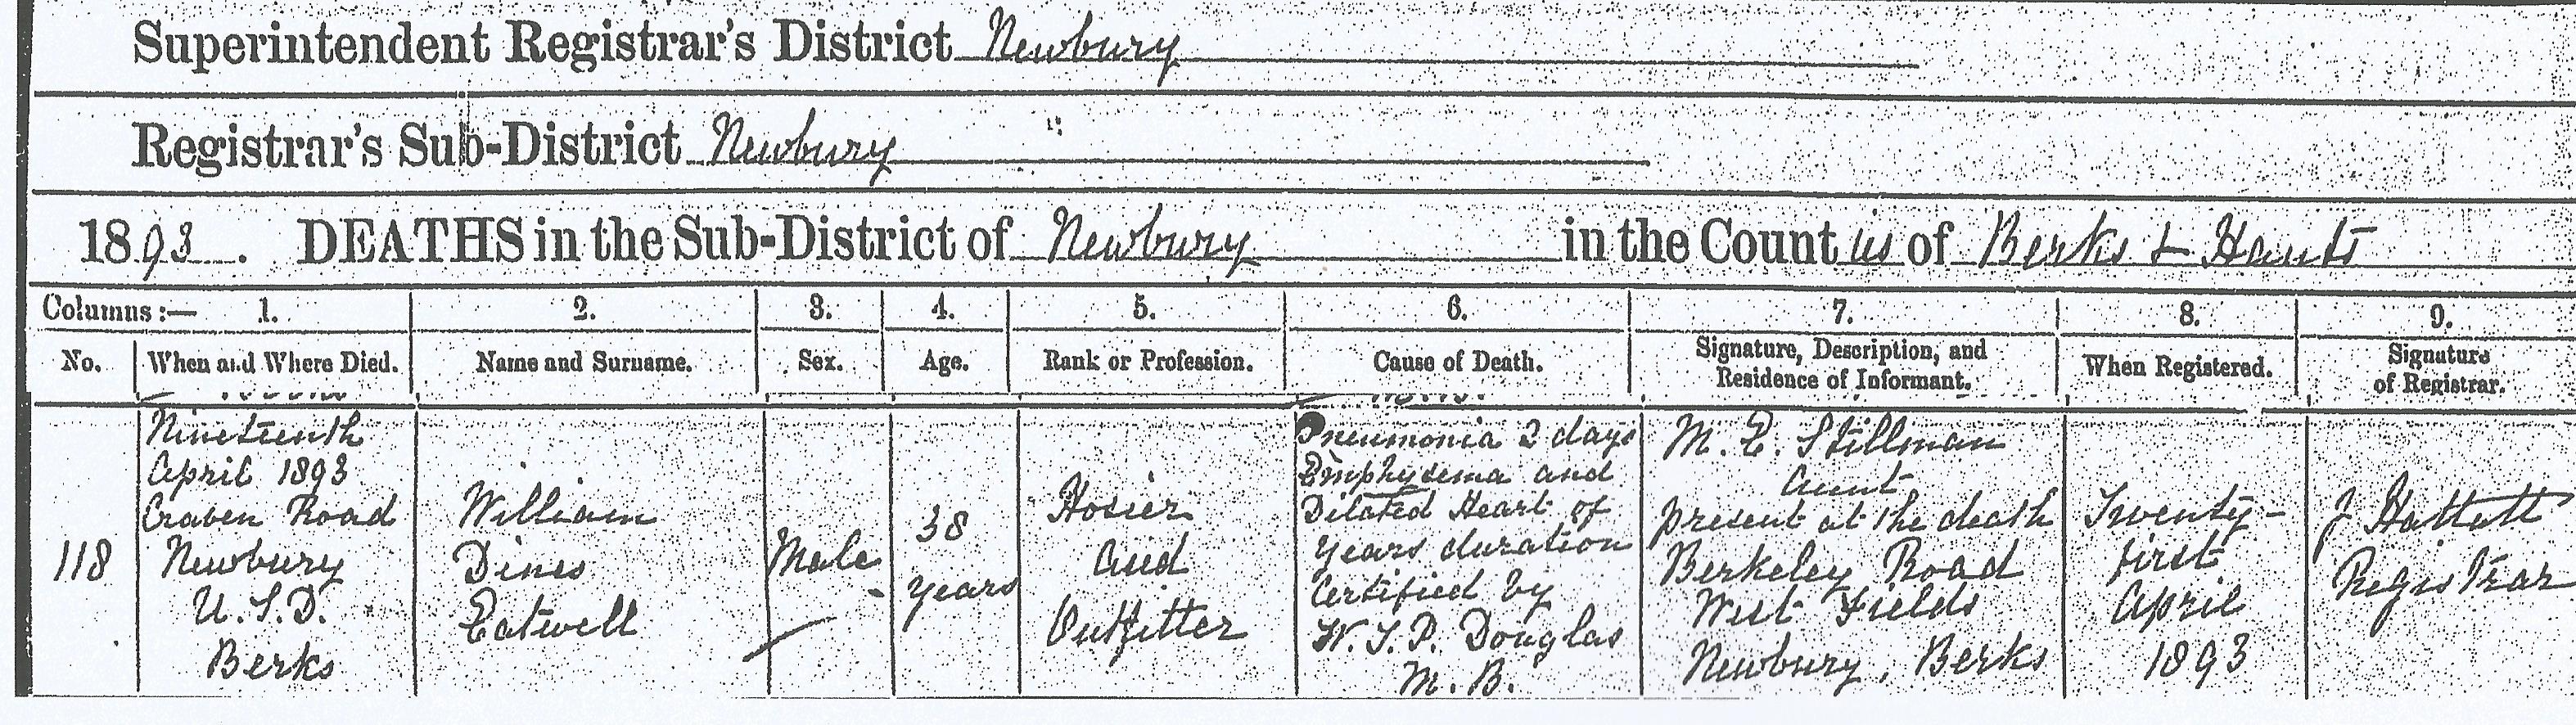 Superintendent Registrar's District Newbury
Registrar's Sub-District Newbury
1893. DEATHS in the Sub-District of Newbury in the Counties of Berks & Hants
Columns:— 1. 2. 3. 4. 5. 6. 7. 8. 9.
No. When and Where Died. Name and Surname. Sex. Age. Rank or Profession. Cause of Death. Signature, Description, and Residence of Informant. When Registered. Signature of Registrar.
118
Nineteenth
April 1893
Craven Road
Newbury
U.S.D.
Berks
William
Dines
Eatwell
Male
38
years
Hosier
and
Outfitter
Pneumonia 2 days
Emphysema and
Dilated Heart of
years duration
Certified by
W. S. P. Douglas
M. B.
M. E. Stillman
Aunt
present at the death
Berkeley Road
West Fields
Newbury, Berks
Twenty-
first
April
1893
J Hattatt
Registrar